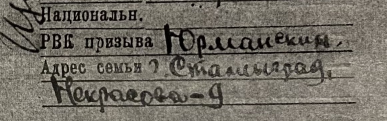 Национальн.
РВК призыва Юрманский.
Адрес семьи г Сталинград,
Некрасова-9